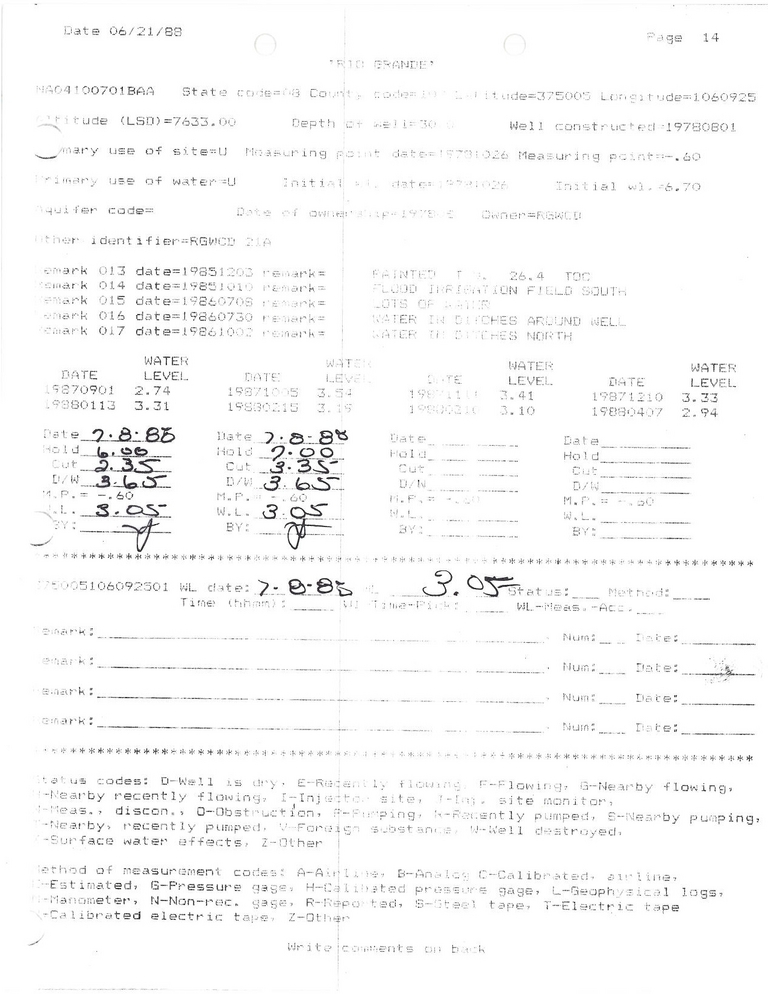 Date 06/21/88 Page 14
'RIO GRANDE'
NA04100701BAA State code=08 County code= Latitude=375005 Longitude=1060925
Altitude (LSD)=7633.00 Depth of well=30.0 Well constructed=19780801
Primary use of site=U Measuring point date=19781026 Measuring point=-.60
Primary use of water=U Initial wl. date=19781026 Initial wl.=6.70
Aquifer code= Date of ownership= Owner=RGWCD
Other identifier=RGWCD 21A
emark 013 date=19851203 remark= PAINTED 26.4 TOC
emark 014 date=19851010 remark= FLOOD IRRIGATION FIELD SOUTH
emark 015 date=19860708 remark= LOTS OF WATER
emark 016 date=19860730 remark= WATER IN DITCHES AROUND WELL
emark 017 date=19861002 remark= WATER IN DITCHES NORTH
WATER WATER WATER WATER
DATE LEVEL DATE LEVEL DATE LEVEL DATE LEVEL
19870901 2.74 19871005 3.54 3.41 19871210 3.33
19880113 3.31 19880215 3.10 19880407 2.94
Date 7-8-88 Date 7-8-88 Date Date
Hold 6.00 Hold 7.00 Hold Hold
Cut 2.35 Cut 3.35 Cut Cut
D/W 3.65 D/W 3.65 D/W D/W
M.P.= -.60 M.P.= -.60 M.P.= -.60 M.P.= -.60
W.L. 3.05 W.L. 3.05 W.L. W.L.
BY: BY: BY: BY:
***********************************************************************
375005106092501 WL date: 7-8-88 3.05 Status: Method:
Time (hhmm): WL Time-Pick: WL-Meas.-Acc.
emark: Num: Date:
emark: Num: Date:
emark: Num: Date:
emark: Num: Date:
***********************************************************************
Status codes: D-Well is dry, E-Recently flowing, F-Flowing, G-Nearby flowing,
H-Nearby recently flowing, I-Injector site, J-Inj. site monitor,
N-Meas., discon., O-Obstruction, P-Pumping, R-Recently pumped, S-Nearby pumping,
T-Nearby, recently pumped, V-Foreign substance, W-Well destroyed,
X-Surface water effects, Z-Other
Method of measurement codes: A-Airline, B-Analog C-Calibrated, airline,
E-Estimated, G-Pressure gage, H-Calibated pressure gage, L-Geophysical logs,
M-Manometer, N-Non-rec. gage, R-Reported, S-Steel tape, T-Electric tape
V-Calibrated electric tape, Z-Other
Write comments on back